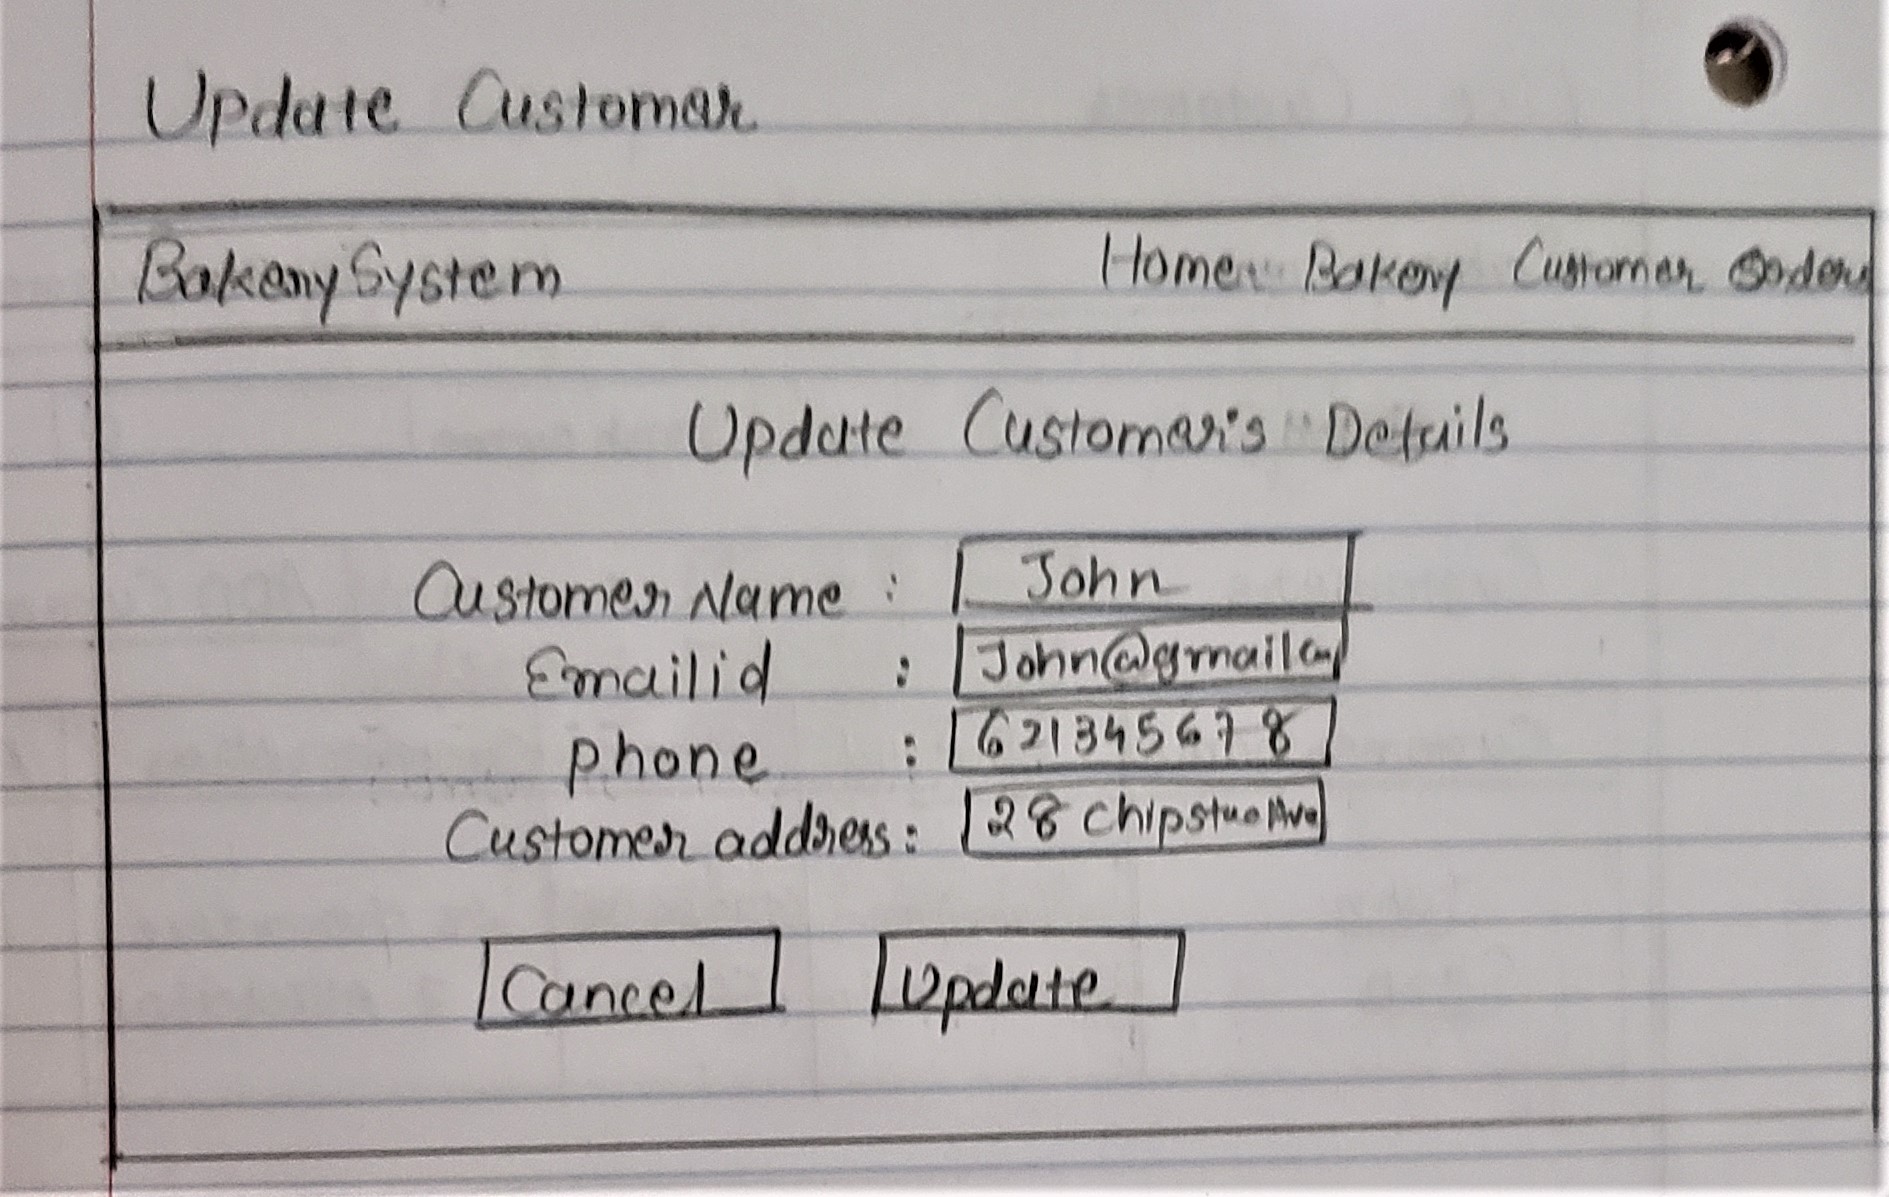 Update Customer
Bakery System Home Bakery Customer Orders
Update Customer's Details
Customer Name : John
Emailid : John@gmail.com
phone : 621345678
Customer address : 28 Ave
Cancel Update